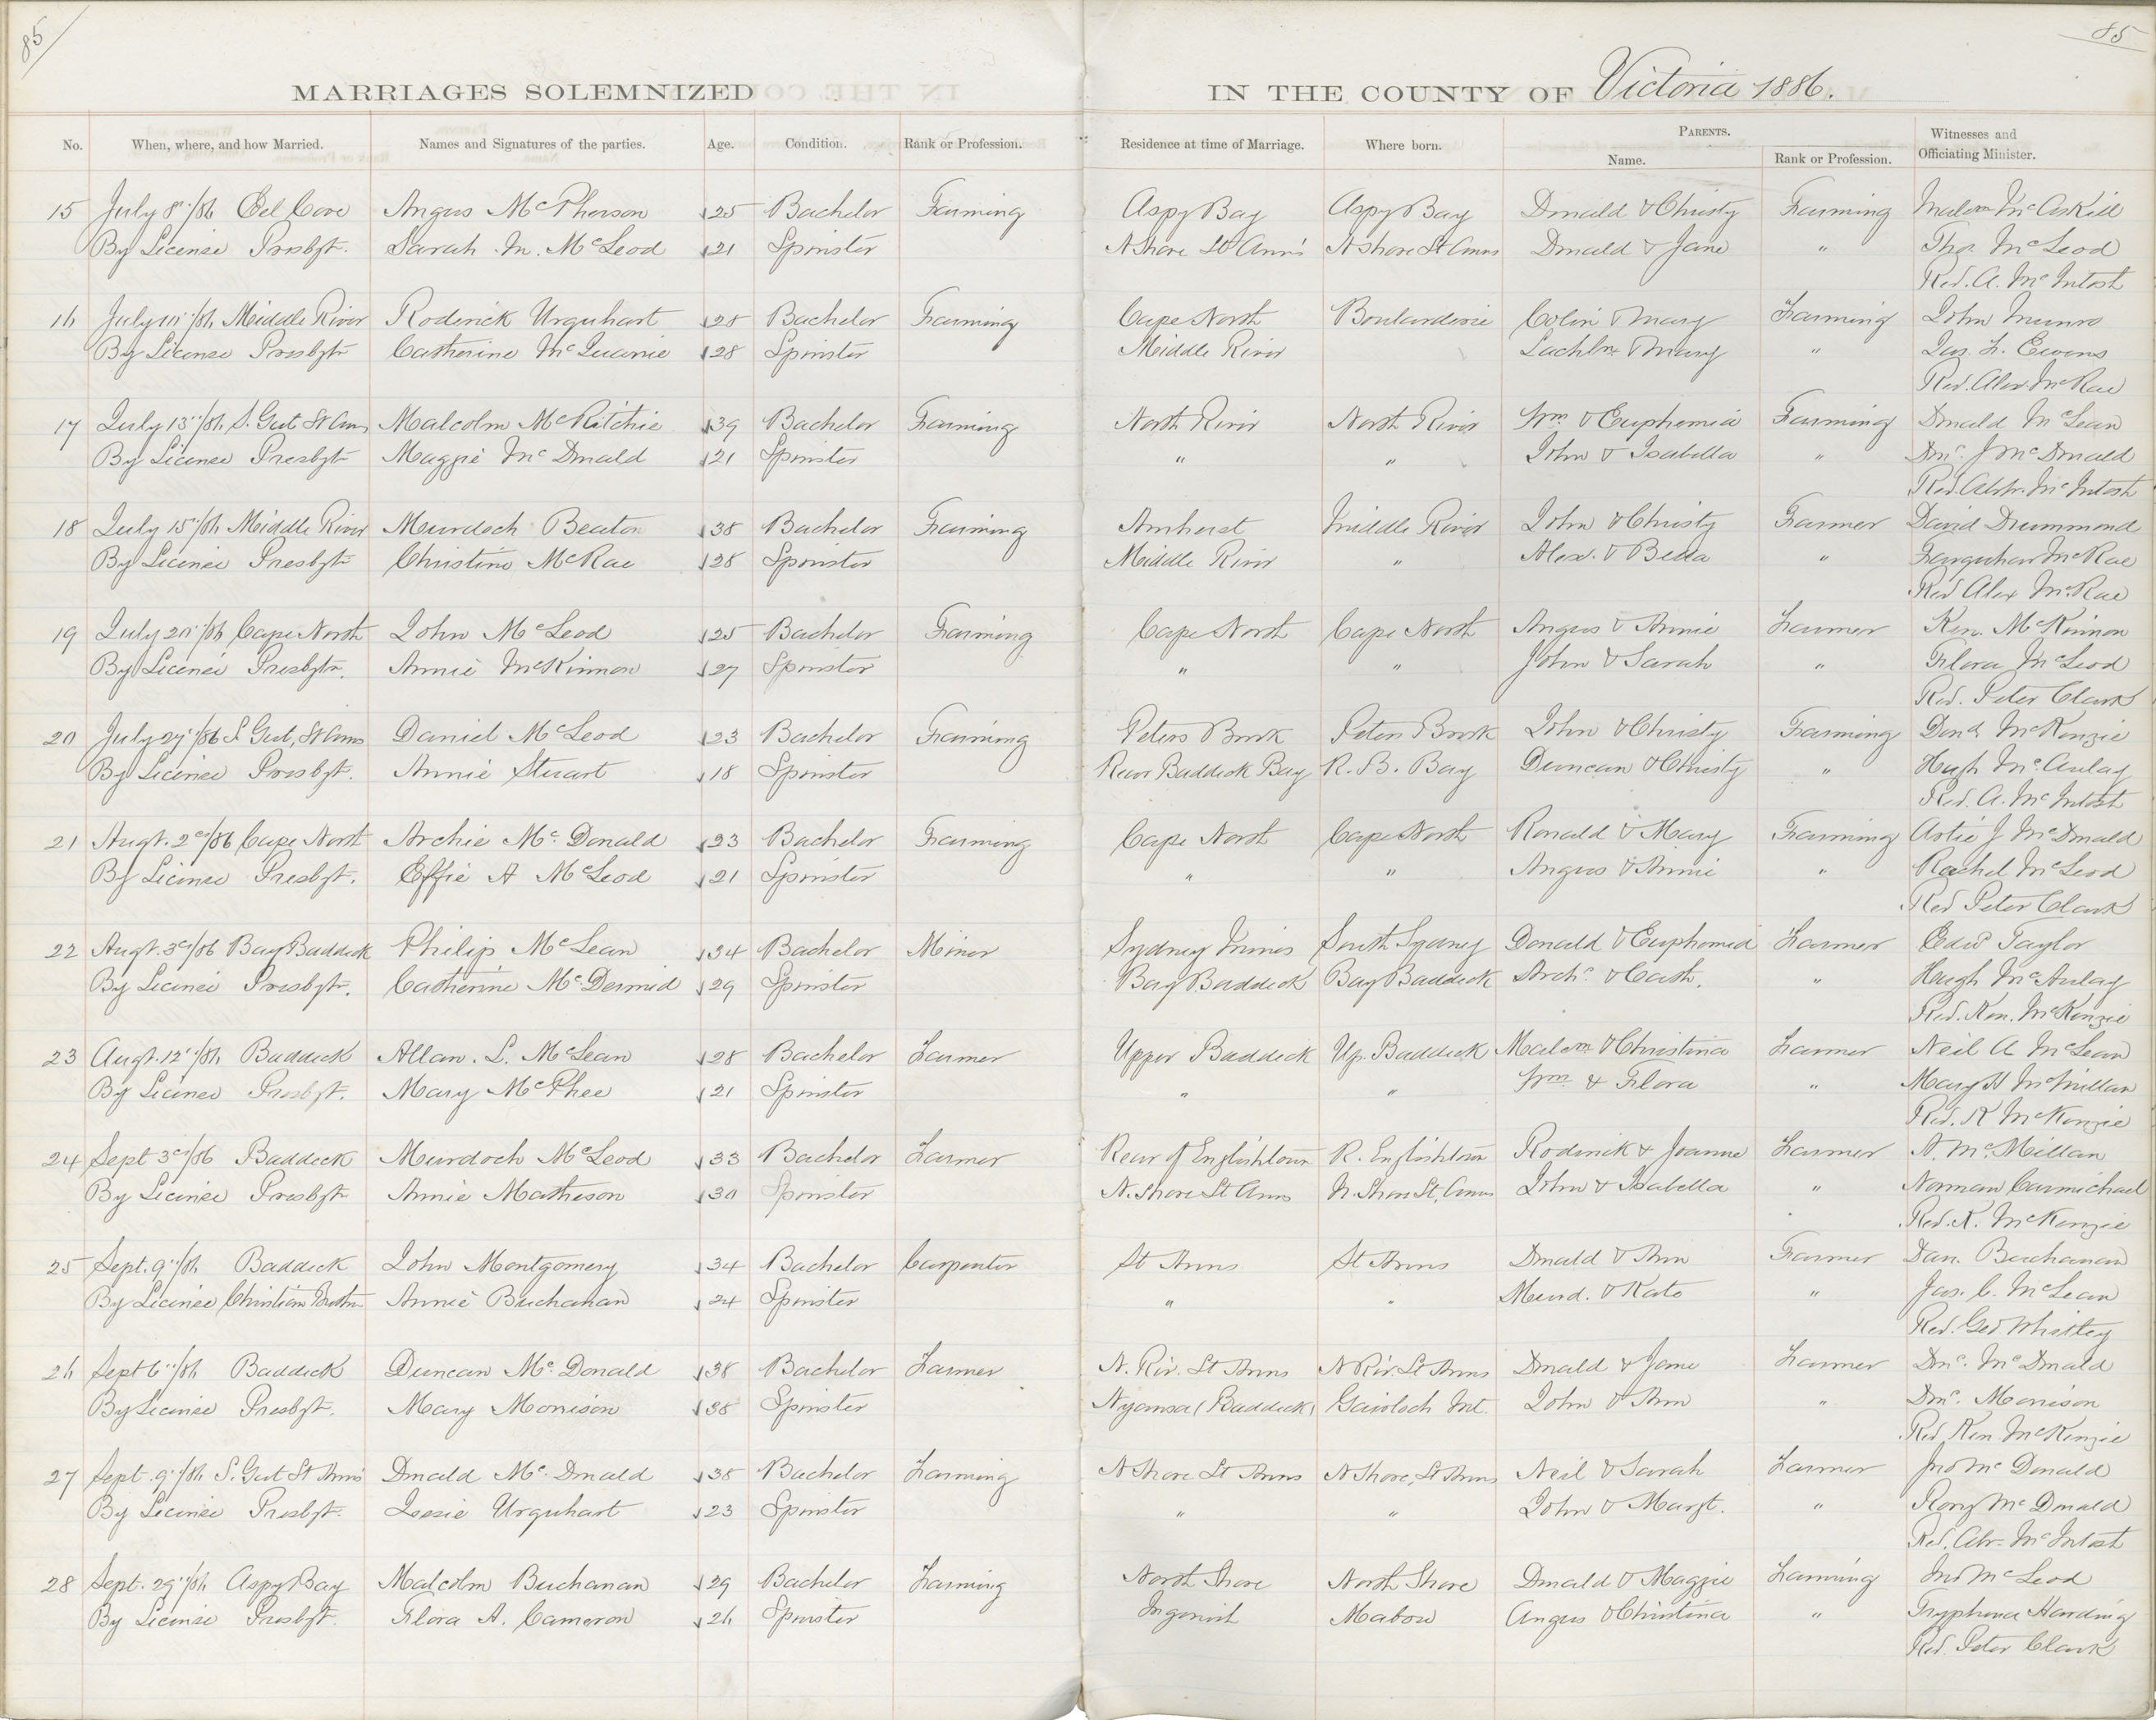 85
85
MARRIAGES SOLEMNIZED IN THE COUNTY OF Victoria 1886.
No. When, where, and how Married. Names and Signatures of the parties. Age. Condition. Rank or Profession. Residence at time of Marriage. Where born. PARENTS. Name. Rank or Profession. Witnesses and Officiating Minister.
15 July 8"/86 Eel Cove Angus McPherson 25 Bachelor Farming Aspy Bay Aspy Bay Donald & Christy Farming Malcm McAskill
By License Presbyt. Sarah M. McLeod 21 Spinster N Shore St Ann's N Shore St Anns Donald & Jane " Thos. McLeod
Rev. A. McIntosh
16 July /86 Middle River Roderick Urquhart 28 Bachelor Farming Cape North Boulardarie Colin & Mary Farming John Munro
By License Presbytr Catherine McQuarrie 28 Spinster Middle River Lachln & Mary " Jas. L. Ewens
Rev. Alex McRae
17 July 13"/86 S. Gut St Anns Malcolm McRitchie 39 Bachelor Farming North River North River Wm & Euphemia Farming Donald McLean
By License Presbytr Maggie McDonald 21 Spinster " " John & Isabella " Dnc. J McDonald
Rev. Alexr. McIntosh
18 July 15"/86 Middle River Murdoch Beaton 38 Bachelor Farming Amherst Middle River John & Christy Farmer David Drummond
By License Presbytr Christina McRae 28 Spinster Middle River " Alex. & Bella " Farquhar McRae
Rev Alex McRae
19 July 20"/86 Cape North John McLeod 25 Bachelor Farming Cape North Cape North Angus & Annie Farmer Ken. McKinnon
By License Presbytr. Annie McKinnon 27 Spinster " " John & Sarah " Flora McLeod
Rev. Peter Clark
20 July 27"/86 S Gut, St Anns Daniel McLeod 23 Bachelor Farming Peters Brook Peters Brook John & Christy Farming Dond McKenzie
By License Presbyt. Annie Stuart 18 Spinster Rear Baddeck Bay R. B. Bay Duncan & Christy " Hugh McAulay
Rev. A. McIntosh
21 Augt. 2nd/86 Cape North Archie McDonald 23 Bachelor Farming Cape North Cape North Ronald & Mary Farming Artie J McDonald
By License Presbyt. Effie A McLeod 21 Spinster " " Angus & Annie " Rachel McLeod
Rev Peter Clark
22 Augt. 3rd/86 Bay Baddeck Philip McLean 34 Bachelor Miner Sydney Mines South Sydney Donald & Euphemia Farmer Edwd Taylor
By License Presbytr. Catherine McDermid 29 Spinster Bay Baddeck Bay Baddeck Archd. & Cath. " Hugh McAulay
Rev. Ken. McKenzie
23 Augt. 12"/86 Baddeck Allan. L. McLean 28 Bachelor Farmer Upper Baddeck Up. Baddeck Malcm & Christina Farmer Neil A McLean
By License Presbyt. Mary McPhee 21 Spinster " " Wm & Flora " Mary H McMillan
Rev. K McKenzie
24 Sept 3rd/86 Baddeck Murdoch McLeod 33 Bachelor Farmer Rear of Englishtown R. Englishtown Roderick & Joanne Farmer A. McMillan
By License Presbytr Annie Matheson 30 Spinster N. Shore St Anns N. Shore St. Anns John & Isabella " Norman Carmichael
Rev. K. McKenzie
25 Sept. 9"/86 Baddeck John Montgomery 34 Bachelor Carpenter St Anns St Anns Donald & Ann Farmer Dan. Buchanan
By License Christian Brethn Annie Buchanan 24 Spinster " " Murd. & Kate " Jas. C. McLean
Rev. Geo Whitley
26 Sept 6"/86 Baddeck Duncan McDonald 38 Bachelor Farmer N. Riv. St Anns N Riv. St Anns Donald & Jane Farmer Dnc. McDonald
By License Presbyt. Mary Morrison 38 Spinster Nyanza (Baddeck) Gairloch Mt. John & Ann " Dnc. Morrison
Rev Ken McKenzie
27 Sept. 9"/86 S. Gut St Anns Donald McDonald 38 Bachelor Farming N Shore St Anns N Shore, St Anns Neil & Sarah Farmer Jno McDonald
By License Presbyt. Jessie Urquhart 23 Spinster " " John & Margt. " Rory McDonald
Rev. Alxr McIntosh
28 Sept. 29"/86 Aspy Bay Malcolm Buchanan 29 Bachelor Farming North Shore North Shore Donald & Maggie Farming Jno McLeod
By License Presbyt. Flora A. Cameron 26 Spinster Ingonish Mabou Angus & Christina " Tryphena Harding
Rev. Peter Clark